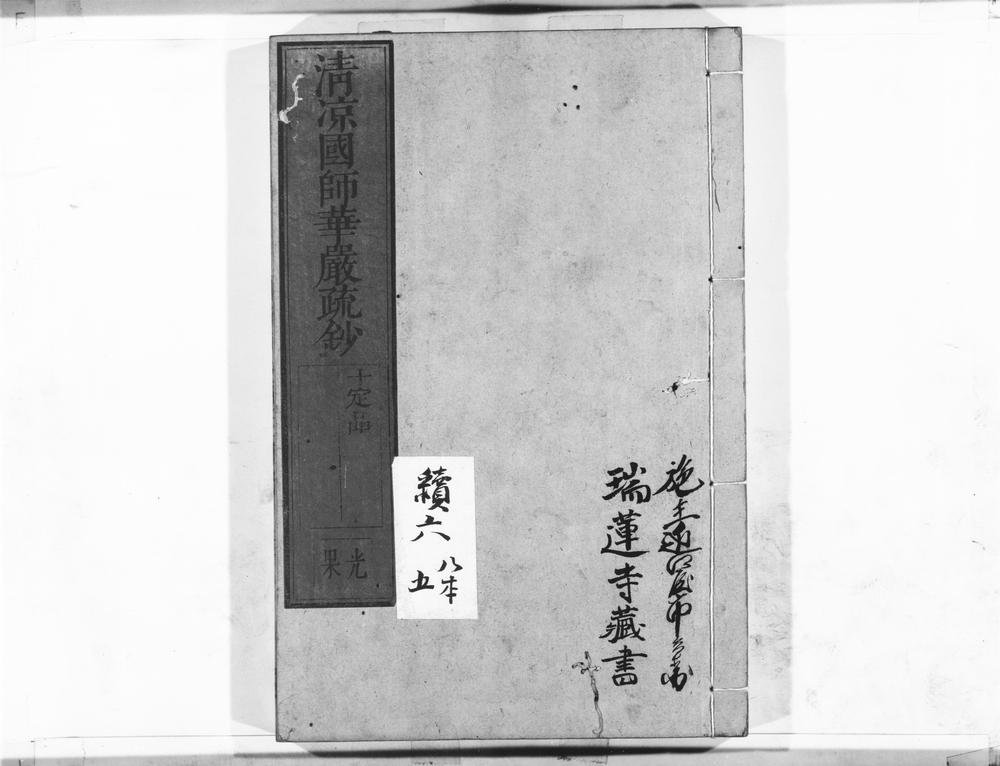 施主
瑞蓮寺藏書
清凉國師華嚴疏鈔
十定品
光
果
續六
八本
五